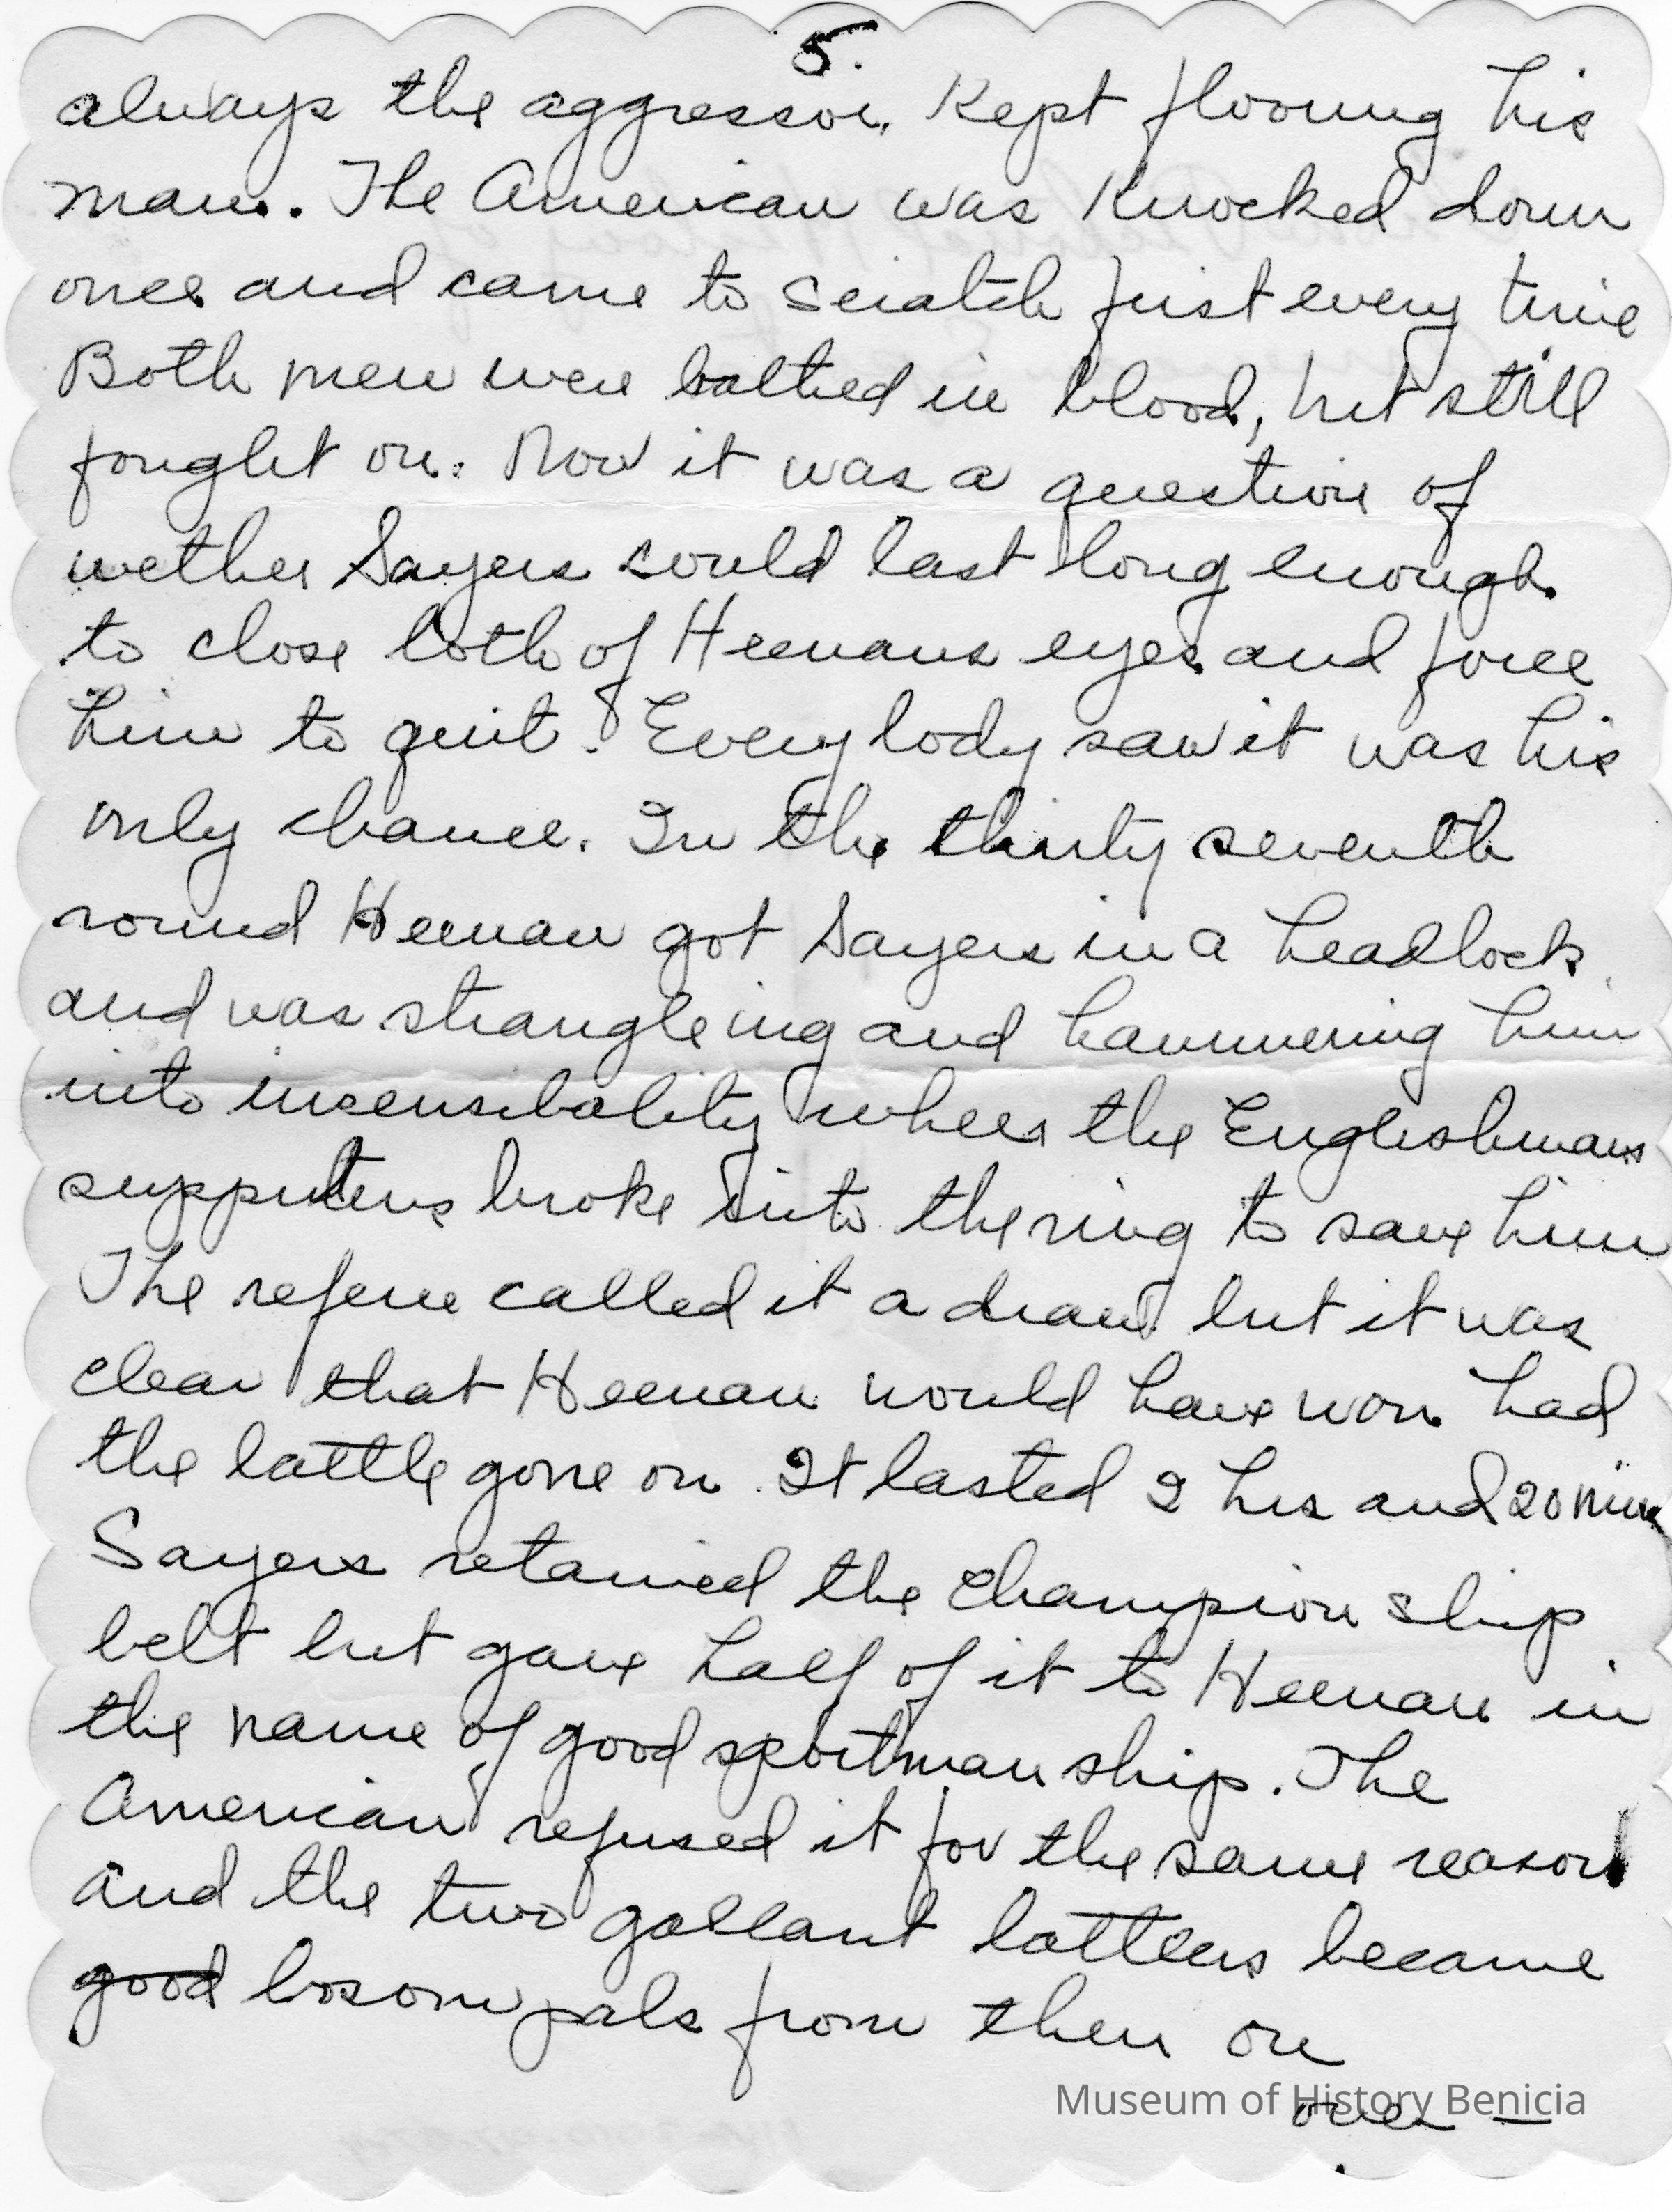 5.
always the aggressor, Kept flooring his
man. The American was Knocked down
once and came to scratch first every time
Both men were bathed in blood, but still
fought on. Now it was a question of
wether Sayers could last long enough
to close both of Heenans eyes and force
him to quit. Every body saw it was his
only chance. In the thirty seventh
round Heenan got Sayers in a headlock
and was strangleing and hammering him
into insensibality when the Englishmans
supporters broke into the ring to save him
The referee called it a draw but it was
clear that Heenan would have won had
the battle gone on. It lasted 2 hrs and 20 min
Sayers retained the champion ship
belt but gave half of it to Heenan in
the name of good sportmanship. The
American refused it for the same reason
and the two gallant battlers became
good bosom pals from then on
over —
Museum of History Benicia